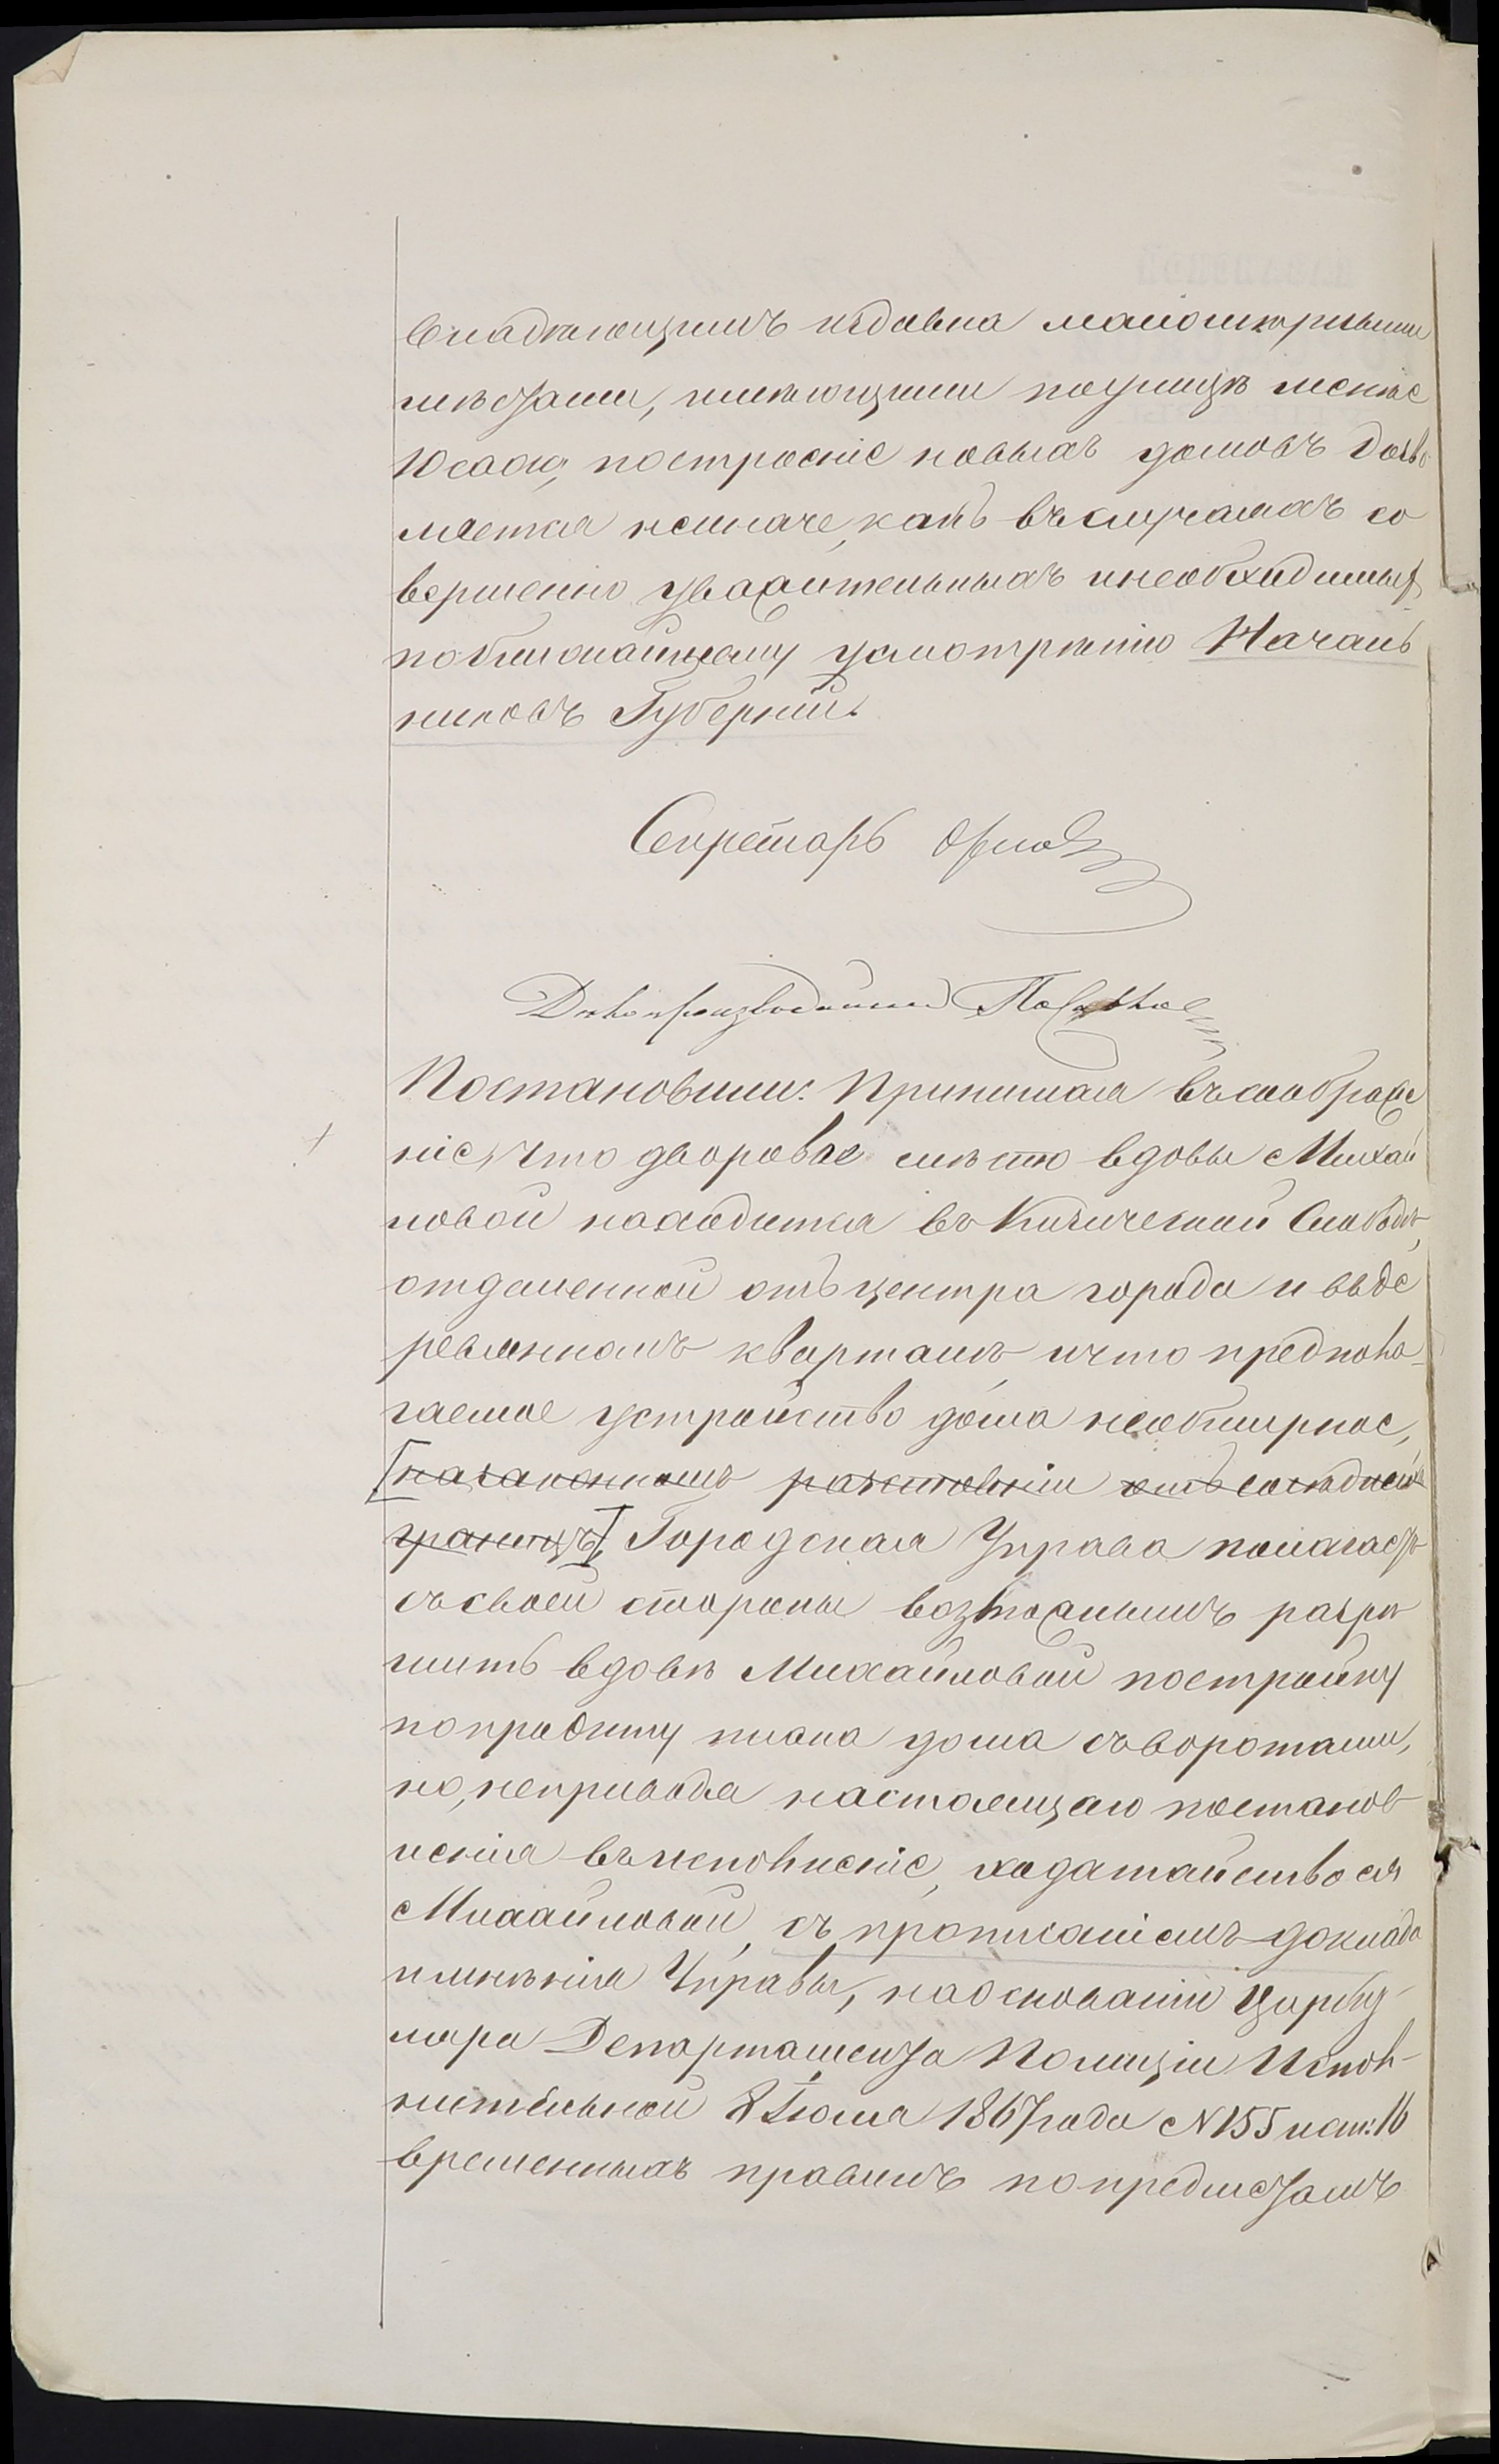 владѣющимъ издавна малоширными
мѣстами, имѣющими поулицѣ менѣе
10 саж, построеніе новыхъ домовъ дозво
ляется неиначе, какъ въ случаяхъ со
вершенно уважительныхъ инеобходимыхъ
поближайшему усмотрѣнію Началь
никовъ Губерній.
Секретарь Орловъ
Дѣлопроизводитель
Постановили: Принимая въ соображе
ніе, что дворовое мѣсто вдовы Михай
ловой находится въ Кизической Слободѣ,
отдаленной отъ центра города и въ де
ревянномъ кварталѣ, и что предпола-
гаемое устройство дома необширное,
[на законномъ разстояніи отъ сосѣднихъ
границъ], Городская Управа полагаетъ
съ своей стороны возможнымъ разрѣ
шить вдовѣ Михайловой постройку
по проекту плана дома съ воротами,
но, неприводя настоящаго постанов
ленія въ исполненіе, ходатайство ея
Михайловой, съ прописаніемъ доклада
и мнѣнія Управы, на основаніи Цирку-
ляра Департамента Полиціи Испол-
нительной 8 Іюля 1867 года N 155 и ст: 16
временныхъ правилъ по предметамъ